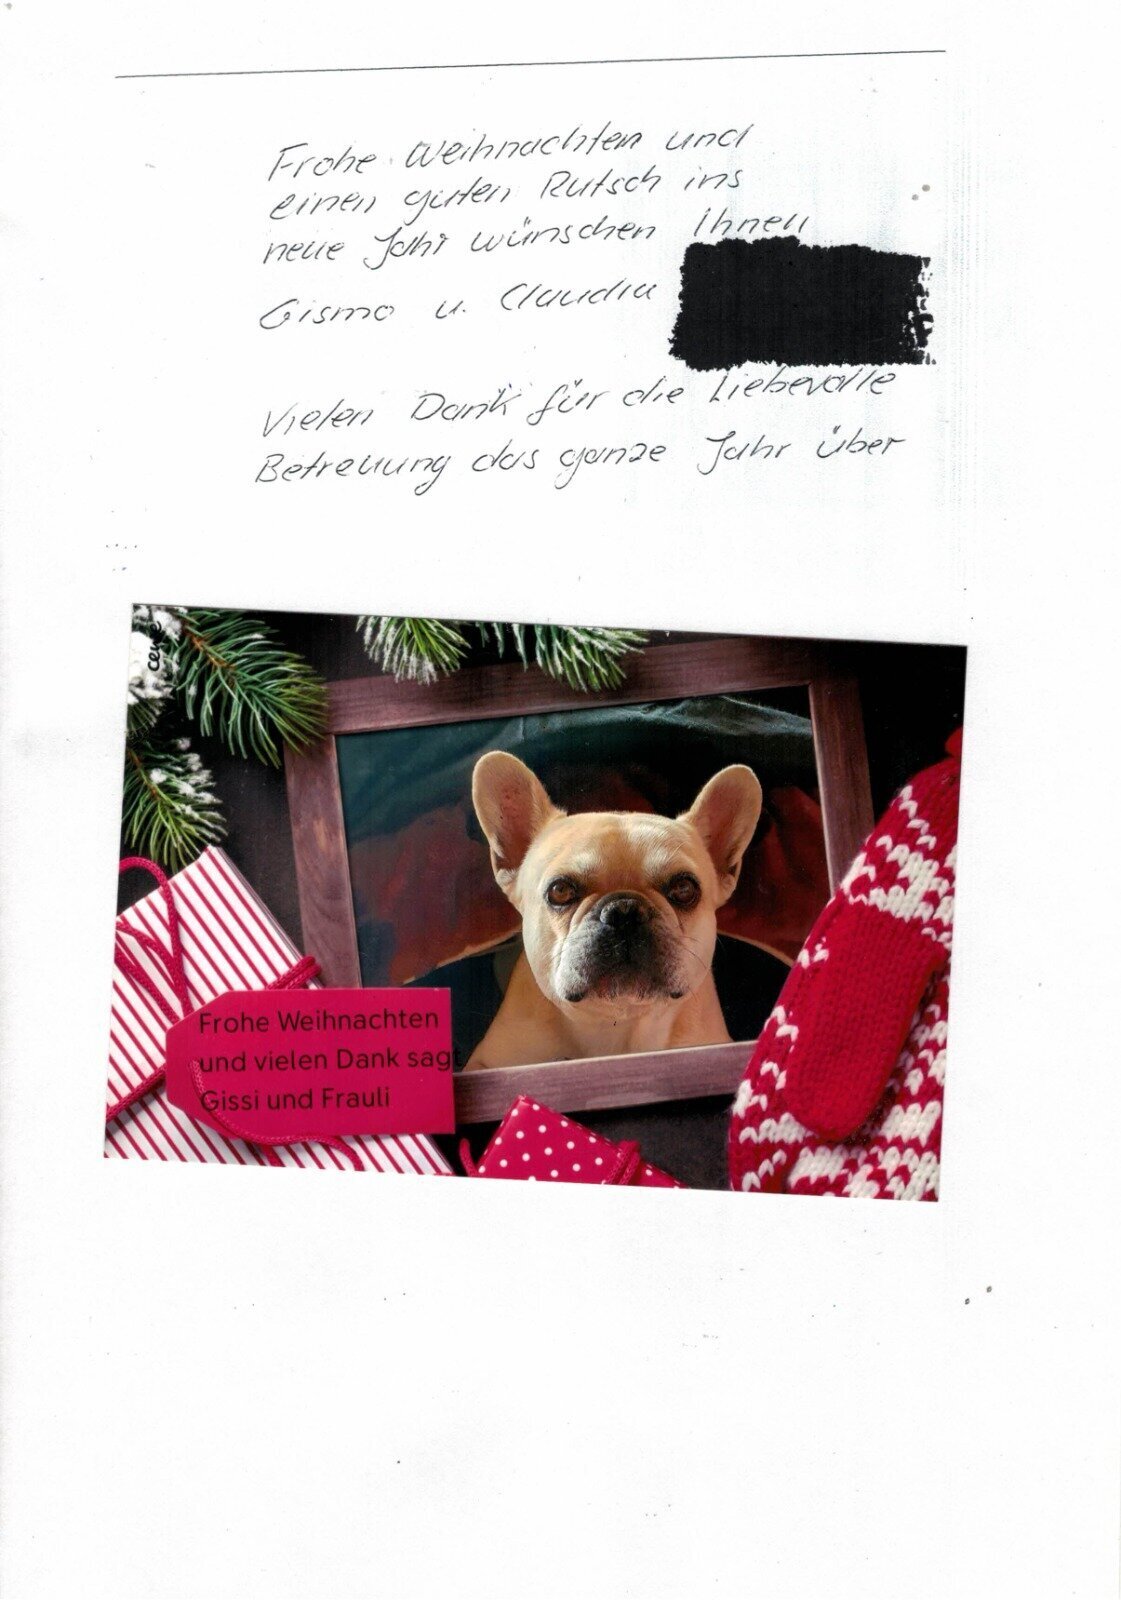 Frohe Weihnachten und
einen guten Rutsch ins
neue Jahr wünschen Ihnen
Gismo u. Claudia
Vielen Dank für die Liebevolle
Betreuung das ganze Jahr über
Frohe Weihnachten
und vielen Dank sagt
Gissi und Frauli
cewe